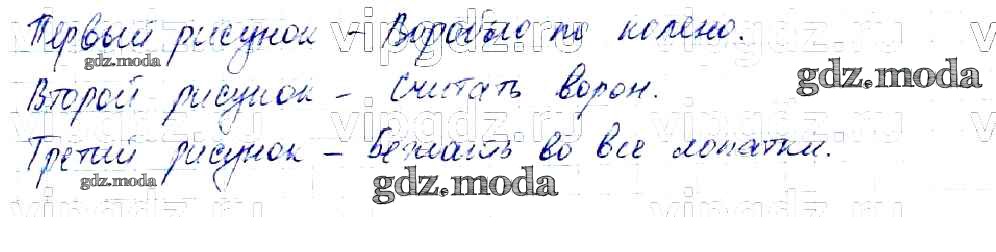 Первый рисунок - Воробью по колено.
gdz.moda
gdz.moda
Второй рисунок - Считать ворон.
Третий рисунок - Бежать во все лопатки.
gdz.moda
gdz.moda
vipgdz.ru